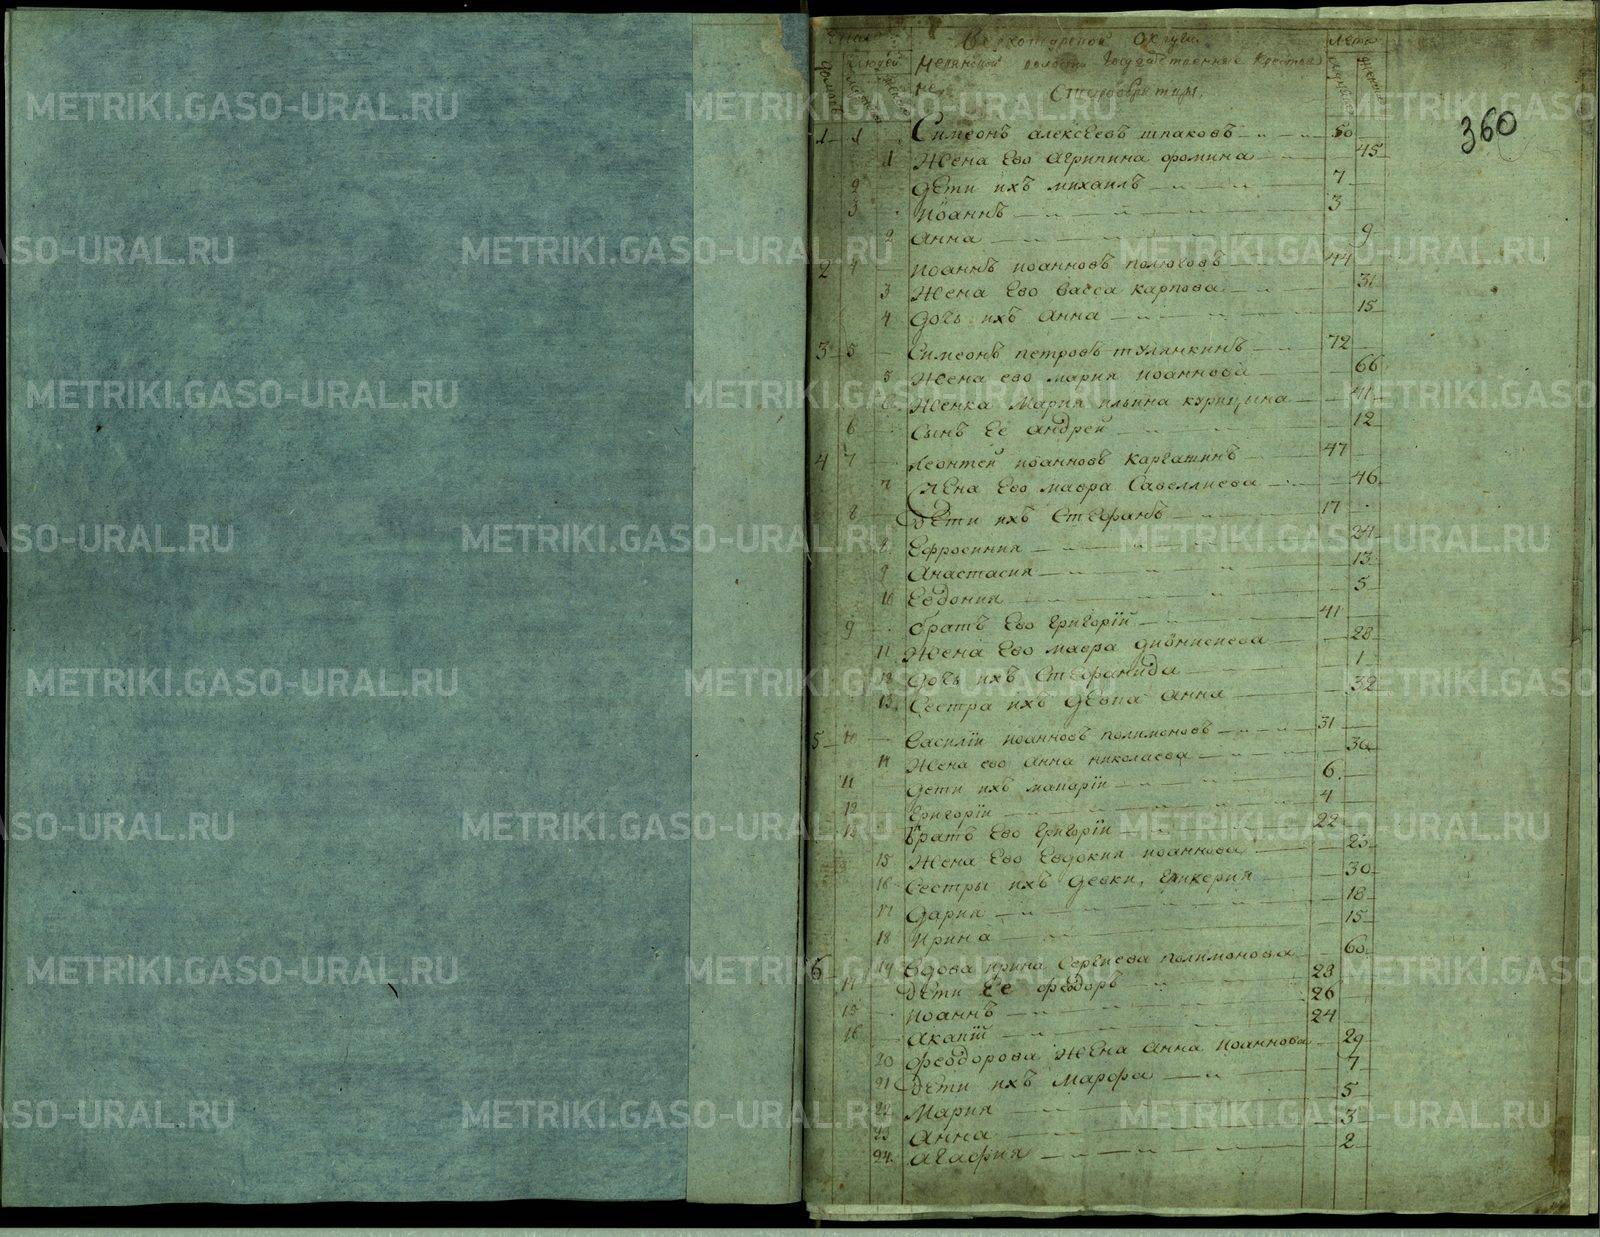 360
Число
Верхотурской округи
Лета
Людей
волости Государственные Крестьяне
Домовъ
Старообрядцы.
1 1 Симеонъ алексеевъ шпаковъ 50
1 Жена Ево Агрипина фомина 45
2 дети ихъ михаилъ 7
3 Иоаннъ 3
2 Анна 9
2 4 иоаннъ иоанновъ 44
3 Жена Ево васса карпова 31
4 дочь ихъ анна 15
3 5 Симеонъ петровъ тулянкинъ 72
5 Жена ево мария иоаннова 66
6 Женка Мария ильина 41
6 Сынъ Ее андрей 12
4 7 леонтей иоанновъ Каргатинъ 47
7 Жена Ево мавра Савеллиева 46
8 дети ихъ Стефанъ 17
8 Ефросиния 24
9 Анастасия 13
10 Евдокия 5
9 братъ Ево григорий 41
11 Жена Ево мавра дионисиева 28
12 дочь ихъ Стефанида 1
13 Сестра ихъ девка анна 32
5 10 Василий иоанновъ полимоновъ 31
14 Жена ево анна николаева 30
11 дети ихъ макарий 6
12 Григорий 4
13 братъ Ево григорий 22
15 Жена Ево Евдокия иоаннова 23
16 Сестры ихъ девки, гликерия 30
17 дария 18
18 Ирина 15
6 19 Вдова ирина Сергиева полимонова 60
14 дети Ее феодоръ 28
15 иоаннъ 26
16 акакий 24
20 феодорова Жена анна иоаннова 29
21 дети ихъ Марфа 7
22 Мария 5
23 анна 3
24 агафия 2
METRIKI.GASO-URAL.RU